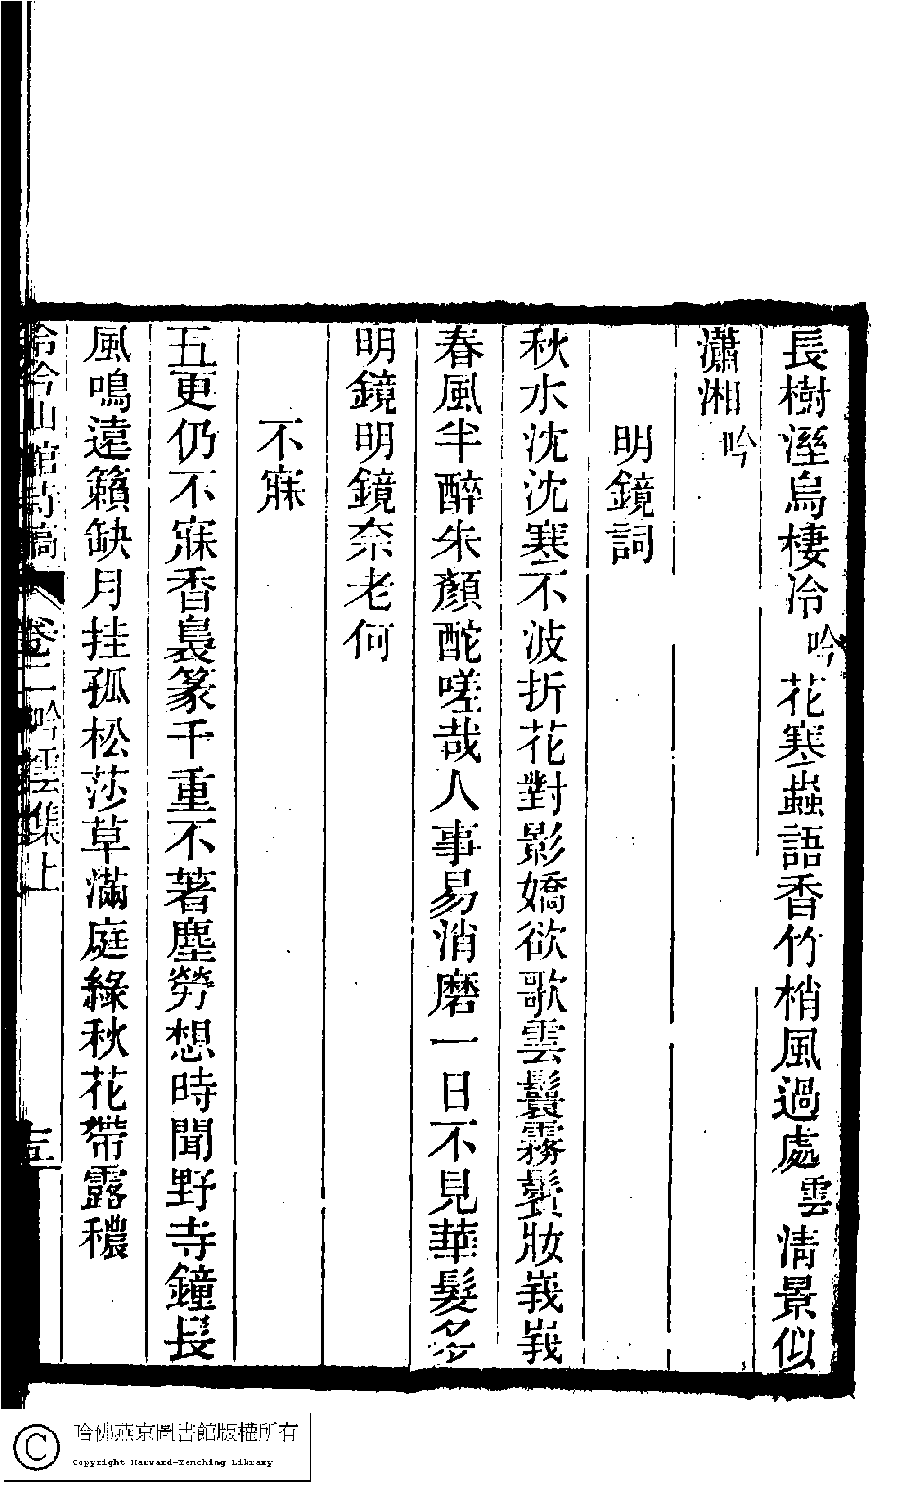 長樹溼烏棲冷吟花寒蟲語香竹梢風過處雲清景似
瀟湘吟
明鏡詞
秋水沈沈寒不波折花對影嬌欲歌雲鬟霧鬢妝峩峩
春風半醉朱顏酡嗟哉人事易消磨一日不見華髮多
明鏡明鏡奈老何
不寐
五更仍不寐香裊篆千重不著塵勞想時聞野寺鐘長
風鳴遠籟缺月挂孤松莎草滿庭綠秋花帶露穠
泠吟山館詩稿 卷二吟雲集上
哈佛燕京圖書館版權所有
Copyright Harvard-Yenching Library